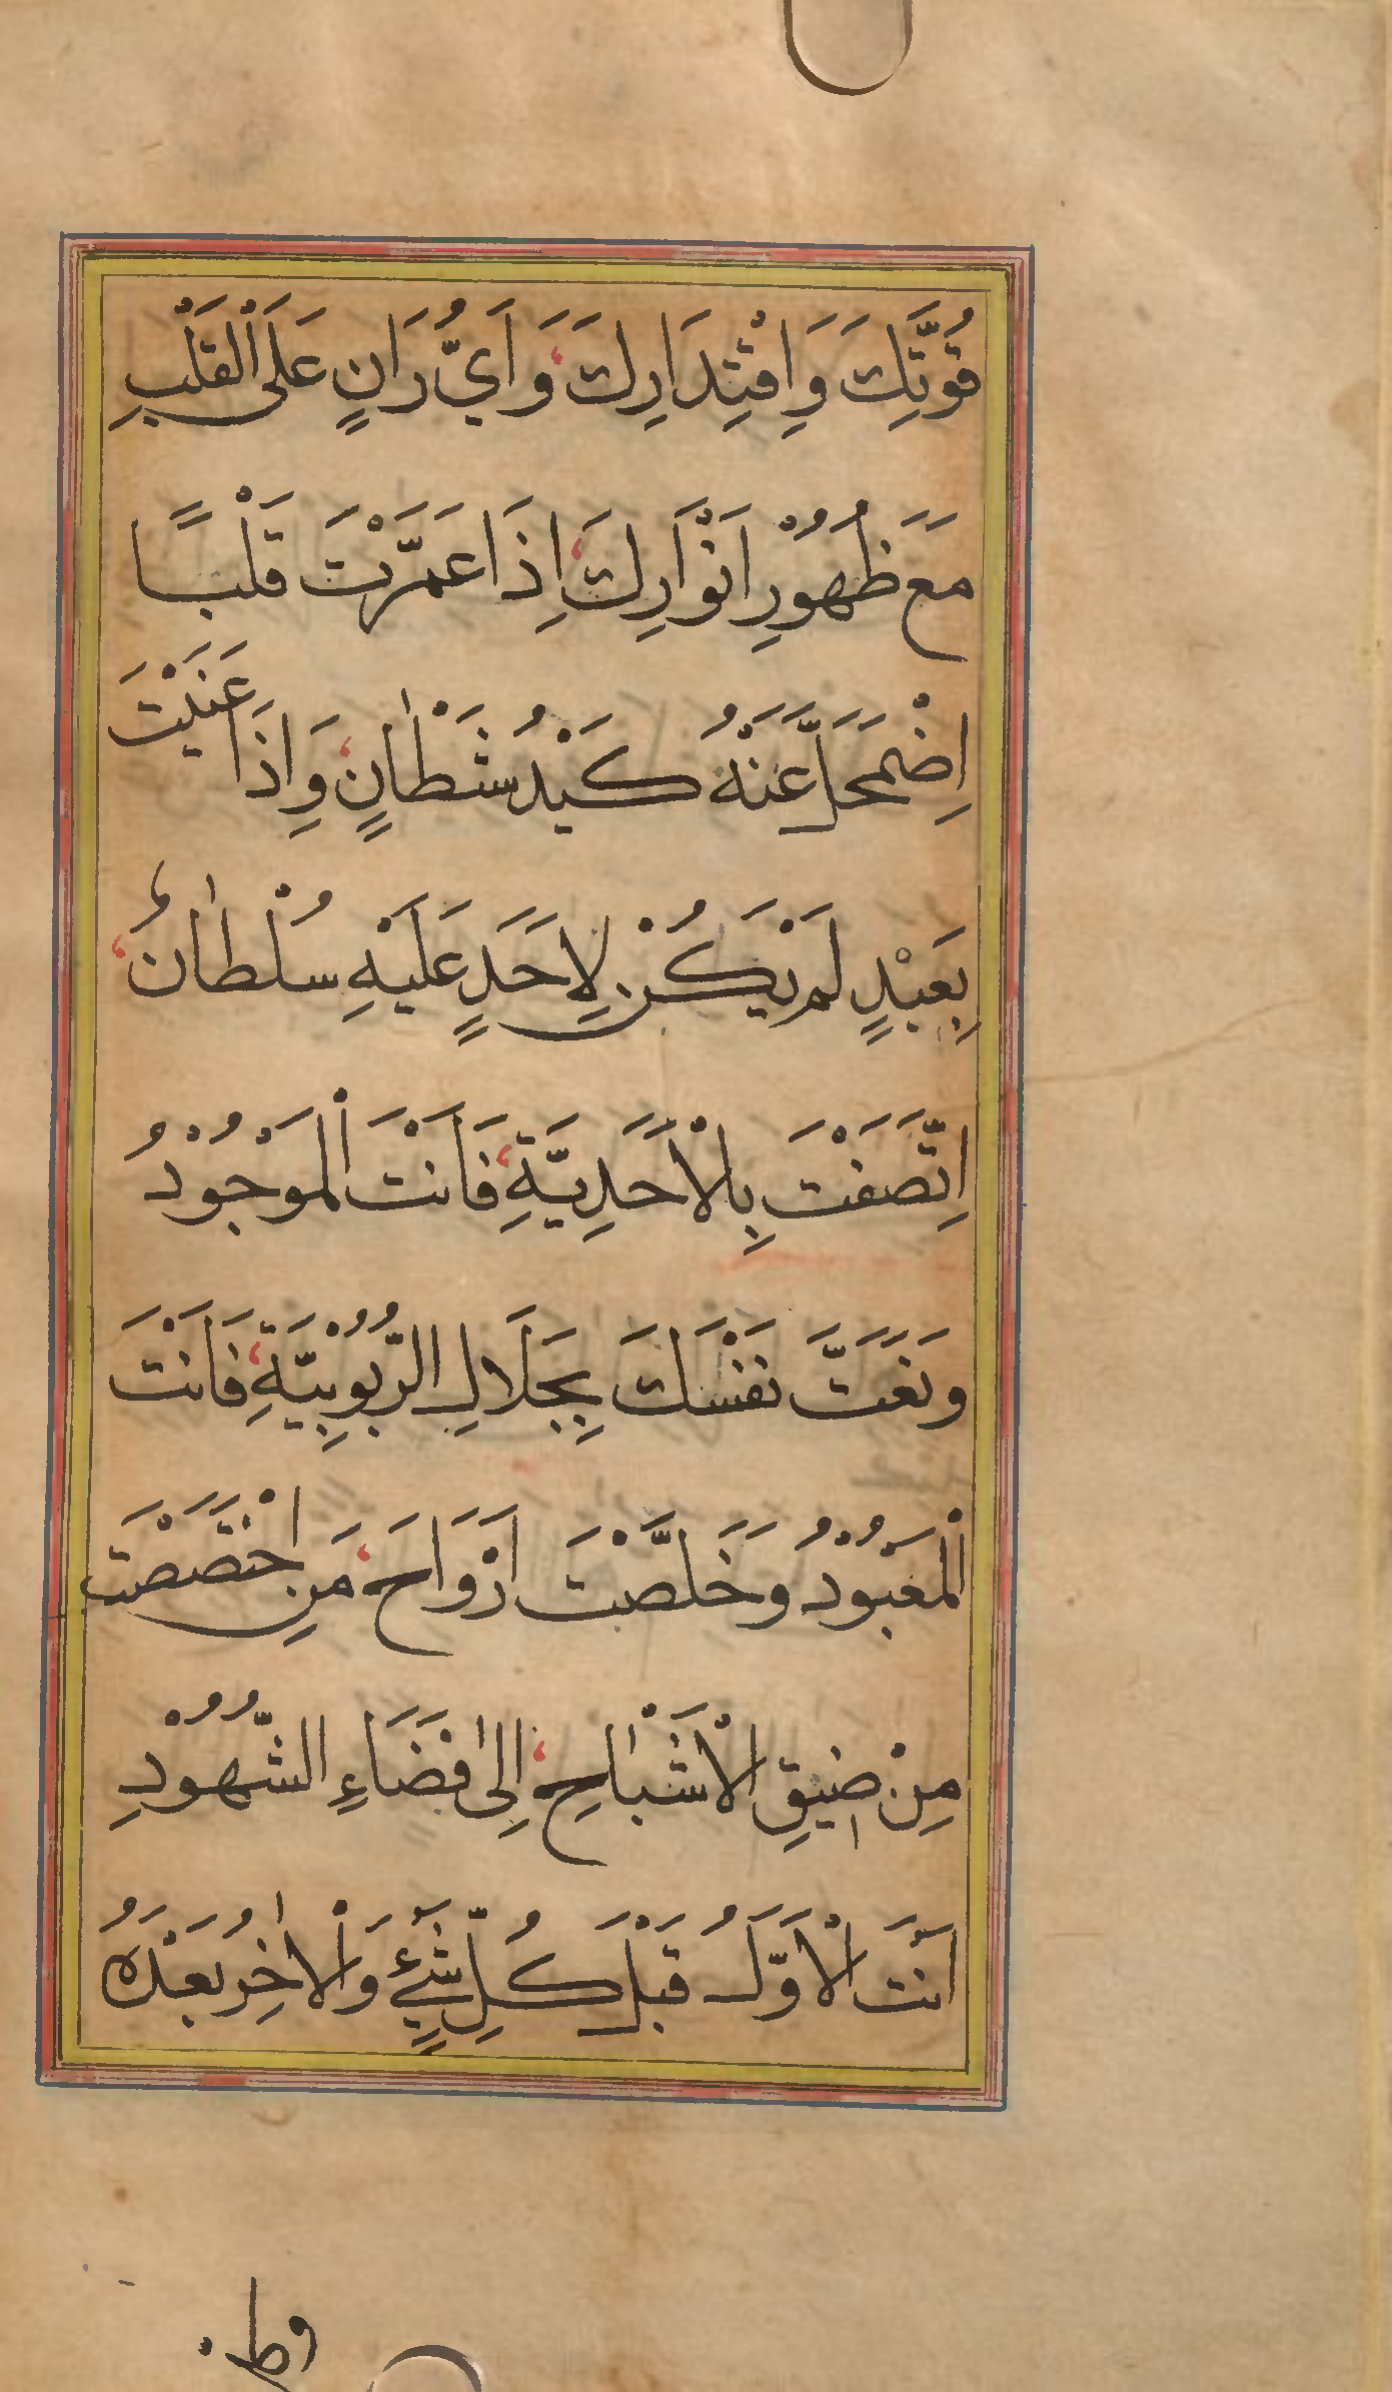 قُوَّتِكَ وَاِقْتِدَارِكَ، وَاَيُّ رَانٍ عَلَى الْقَلْبِ
مَعَ ظُهُوْرِ اَنْوَارِكَ، اِذَا عَمَّرْتَ قَلْبًا
اِضْمَحَلَّ عَنْهُ كَيْدُ شَطْانٍ، وَاِذَا عَنَيْتَ
بِعَبْدٍ لَمْ يَكُنْ لِاَحَدٍ عَلَيْهِ سُلْطَانٌ،
اِتَّصَفْتَ بِالْاَحَدِيَّةِ، فَاَنْتَ الْمَوْجُوْدُ
وَنَعَتَّ نَفْسَكَ بِجَلَالِ الرُّبُوْبِيَّةِ، فَاَنْتَ
الْمَعْبُوْدُ وَخَلَّصْتَ اَرْوَاحَ، مَنِ اخْتَصَصْتَ
مِنْ ضِيْقِ الْاَشْبَاحِ، اِلٰى فَضَاءِ الشُّهُوْدِ
اَنْتَ الْاَوَّلُ قَبْلَ كُلِّ شَيْءٍ وَالْاٰخِرُ بَعْدَهُ